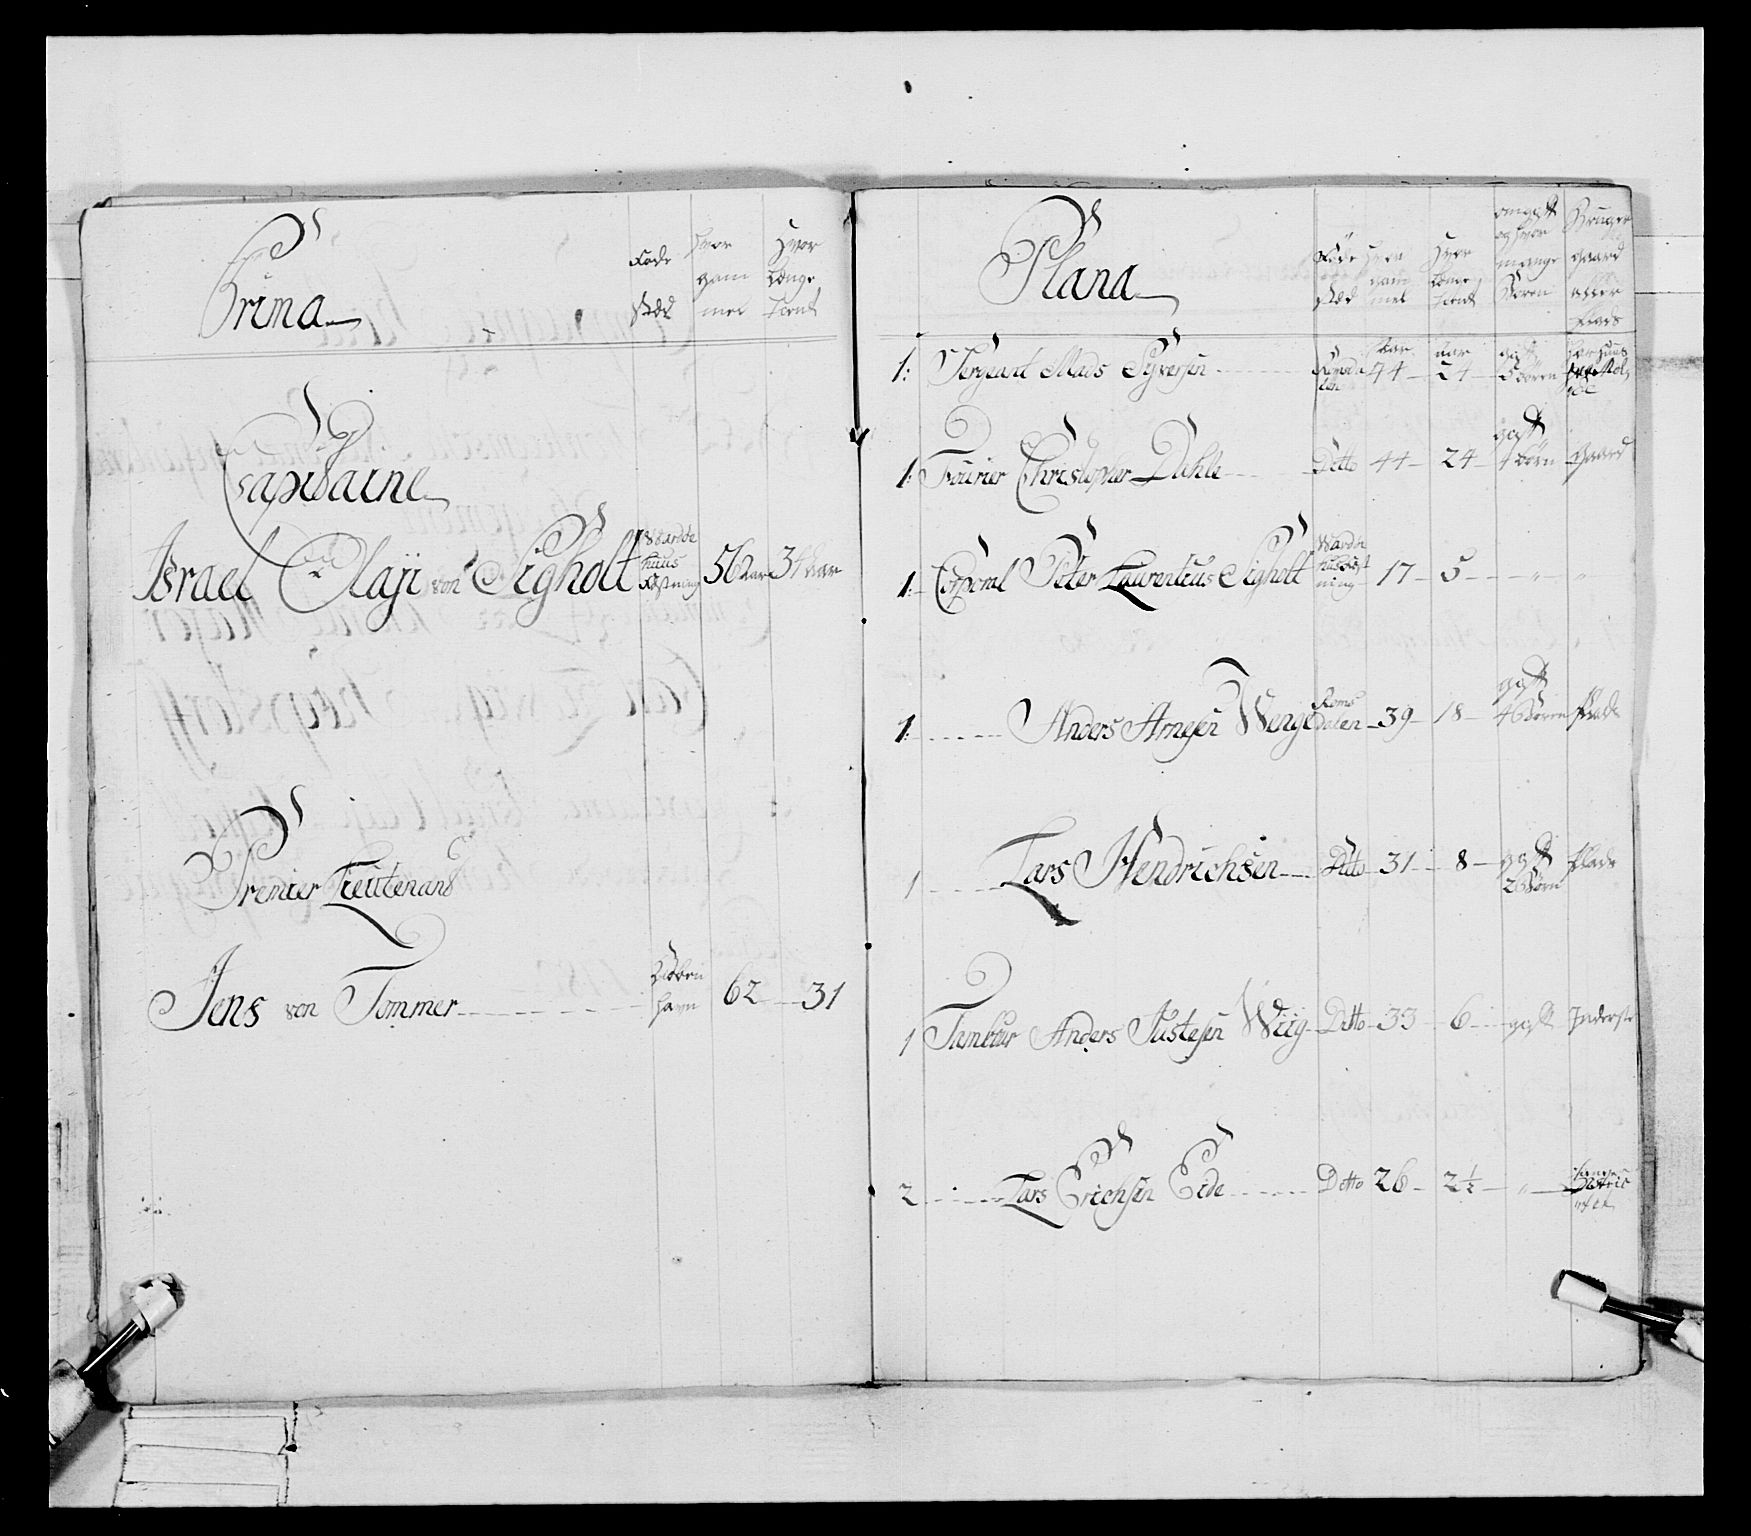 Prima
Føde
Stæd
Hvor
gam
mel
Hvor
Længe
Tient
Capitaine
Israel Olaji von Sigholt Wardøe
huus
Fæstning 56 aar 34 aar
Premier Lieutenand
Jens von Tommer Kiøben
havn 62 31
Plana
Føde
Stæd
Hvor
gam
mel
Hvor
Længe
Tient
og hvor
mange
Børen
Bruger
gaard
eller
Plads
1: Sergeant Mads Syversen Romsda
len 44 aar 24 aar gift
5 børen
1: Fourier Christopher Dahle Ditto 44 24 gift
4 børn gaard
1: Corporal Peter Laurentius Sigholt Wardøe
huus Fæst
ning 17 5 " "
1: Anders Arnesen Wenge Roms
dalen 39 18 gift
4 Børen Plads
1 Lars Hendrichsen Ditto 31 8 gift
2 Børn Plads
1 Tambour Anders Justesen Wiig Ditto 33 6 gift Inderste
2 Lars Erichsen Eide Ditto 26 2½ "